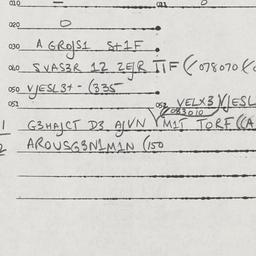 010 — 011 0
020 0
030 A GROJS1 S+1F
040 SVAS3R 12 ZEJR TIF (/078070(/0
050 VJESL3+ - (335
051 052 VELX3)(JESL
083010
1 G3HAJCT D3 AJVN M1T TORF ((A
2 AROUSG3N1M1N (150